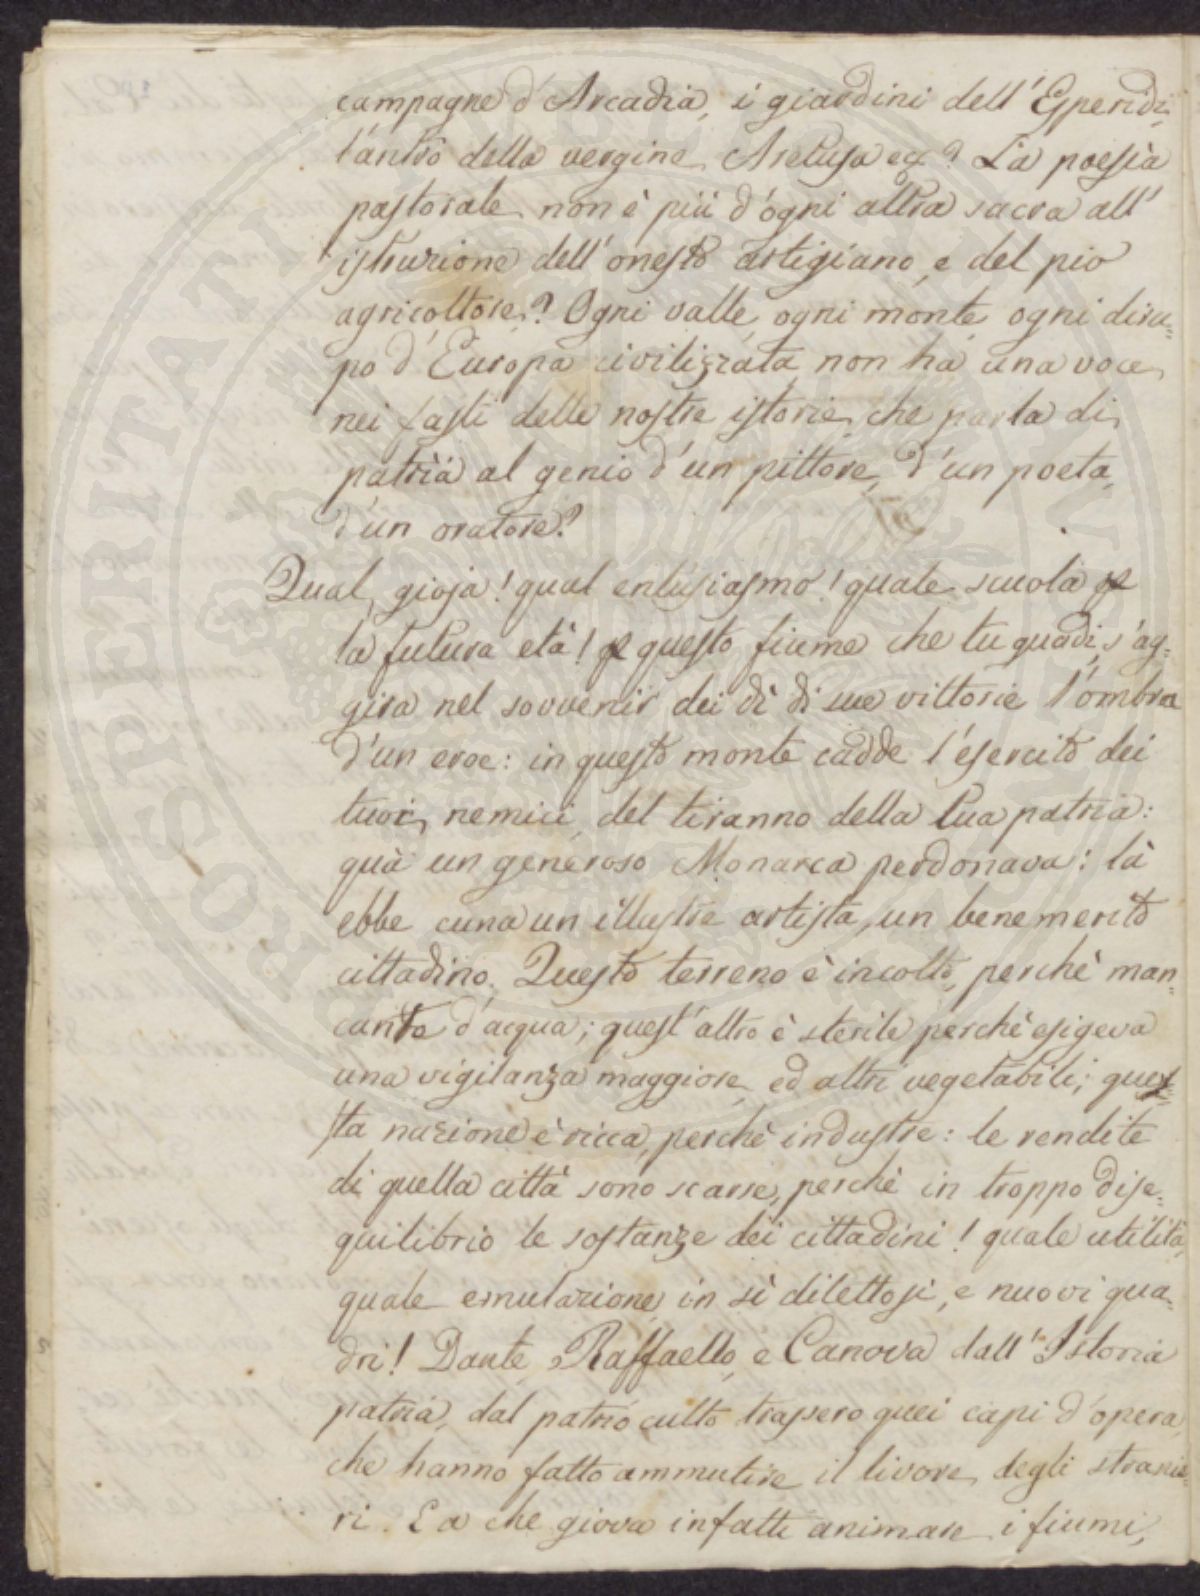 campagne d'Arcadia, i giardini dell'Esperidi,
l'antro della vergine Aretusa ec? La poesia
pastorale non è più d'ogni altra sacra all'
istruzione dell'onesto artigiano, e del pio
agricoltore? Ogni valle, ogni monte, ogni diru=
po d'Europa civilizzata non ha una voce
nei fasti delle nostre istorie, che parla di
patria al genio d'un pittore, d'un poeta,
d'un oratore?
Qual gioja! qual entusiasmo! quale scuola p
la futura età! p questo fiume che tu guadi, s'ag=
gira nel sovvenir dei dì di sue vittorie l'ombra
d'un eroe: in questo monte cadde l'esercito dei
tuoi nemici, del tiranno della tua patria:
quà un generoso Monarca perdonava: là
ebbe cuna un illustre artista, un benemerito
cittadino. Questo terreno è incolto, perchè man=
cante d'acqua; quest'altro è sterile perchè esigeva
una vigilanza maggiore, ed altri vegetabili; ques=
ta nazione è ricca, perchè industre: le rendite
di quella città sono scarse, perchè in troppo dise=
quilibrio le sostanze dei cittadini! quale utilità,
quale emulazione in sì dilettosi, e nuovi qua=
dri! Dante, Raffaello, e Canova dall'Istoria
patria, dal patrio culto trassero quei capi d'opera,
che hanno fatto ammutire il livore degli stranie=
ri. E a che giova infatti animare i fiumi,
PROSPERITATI